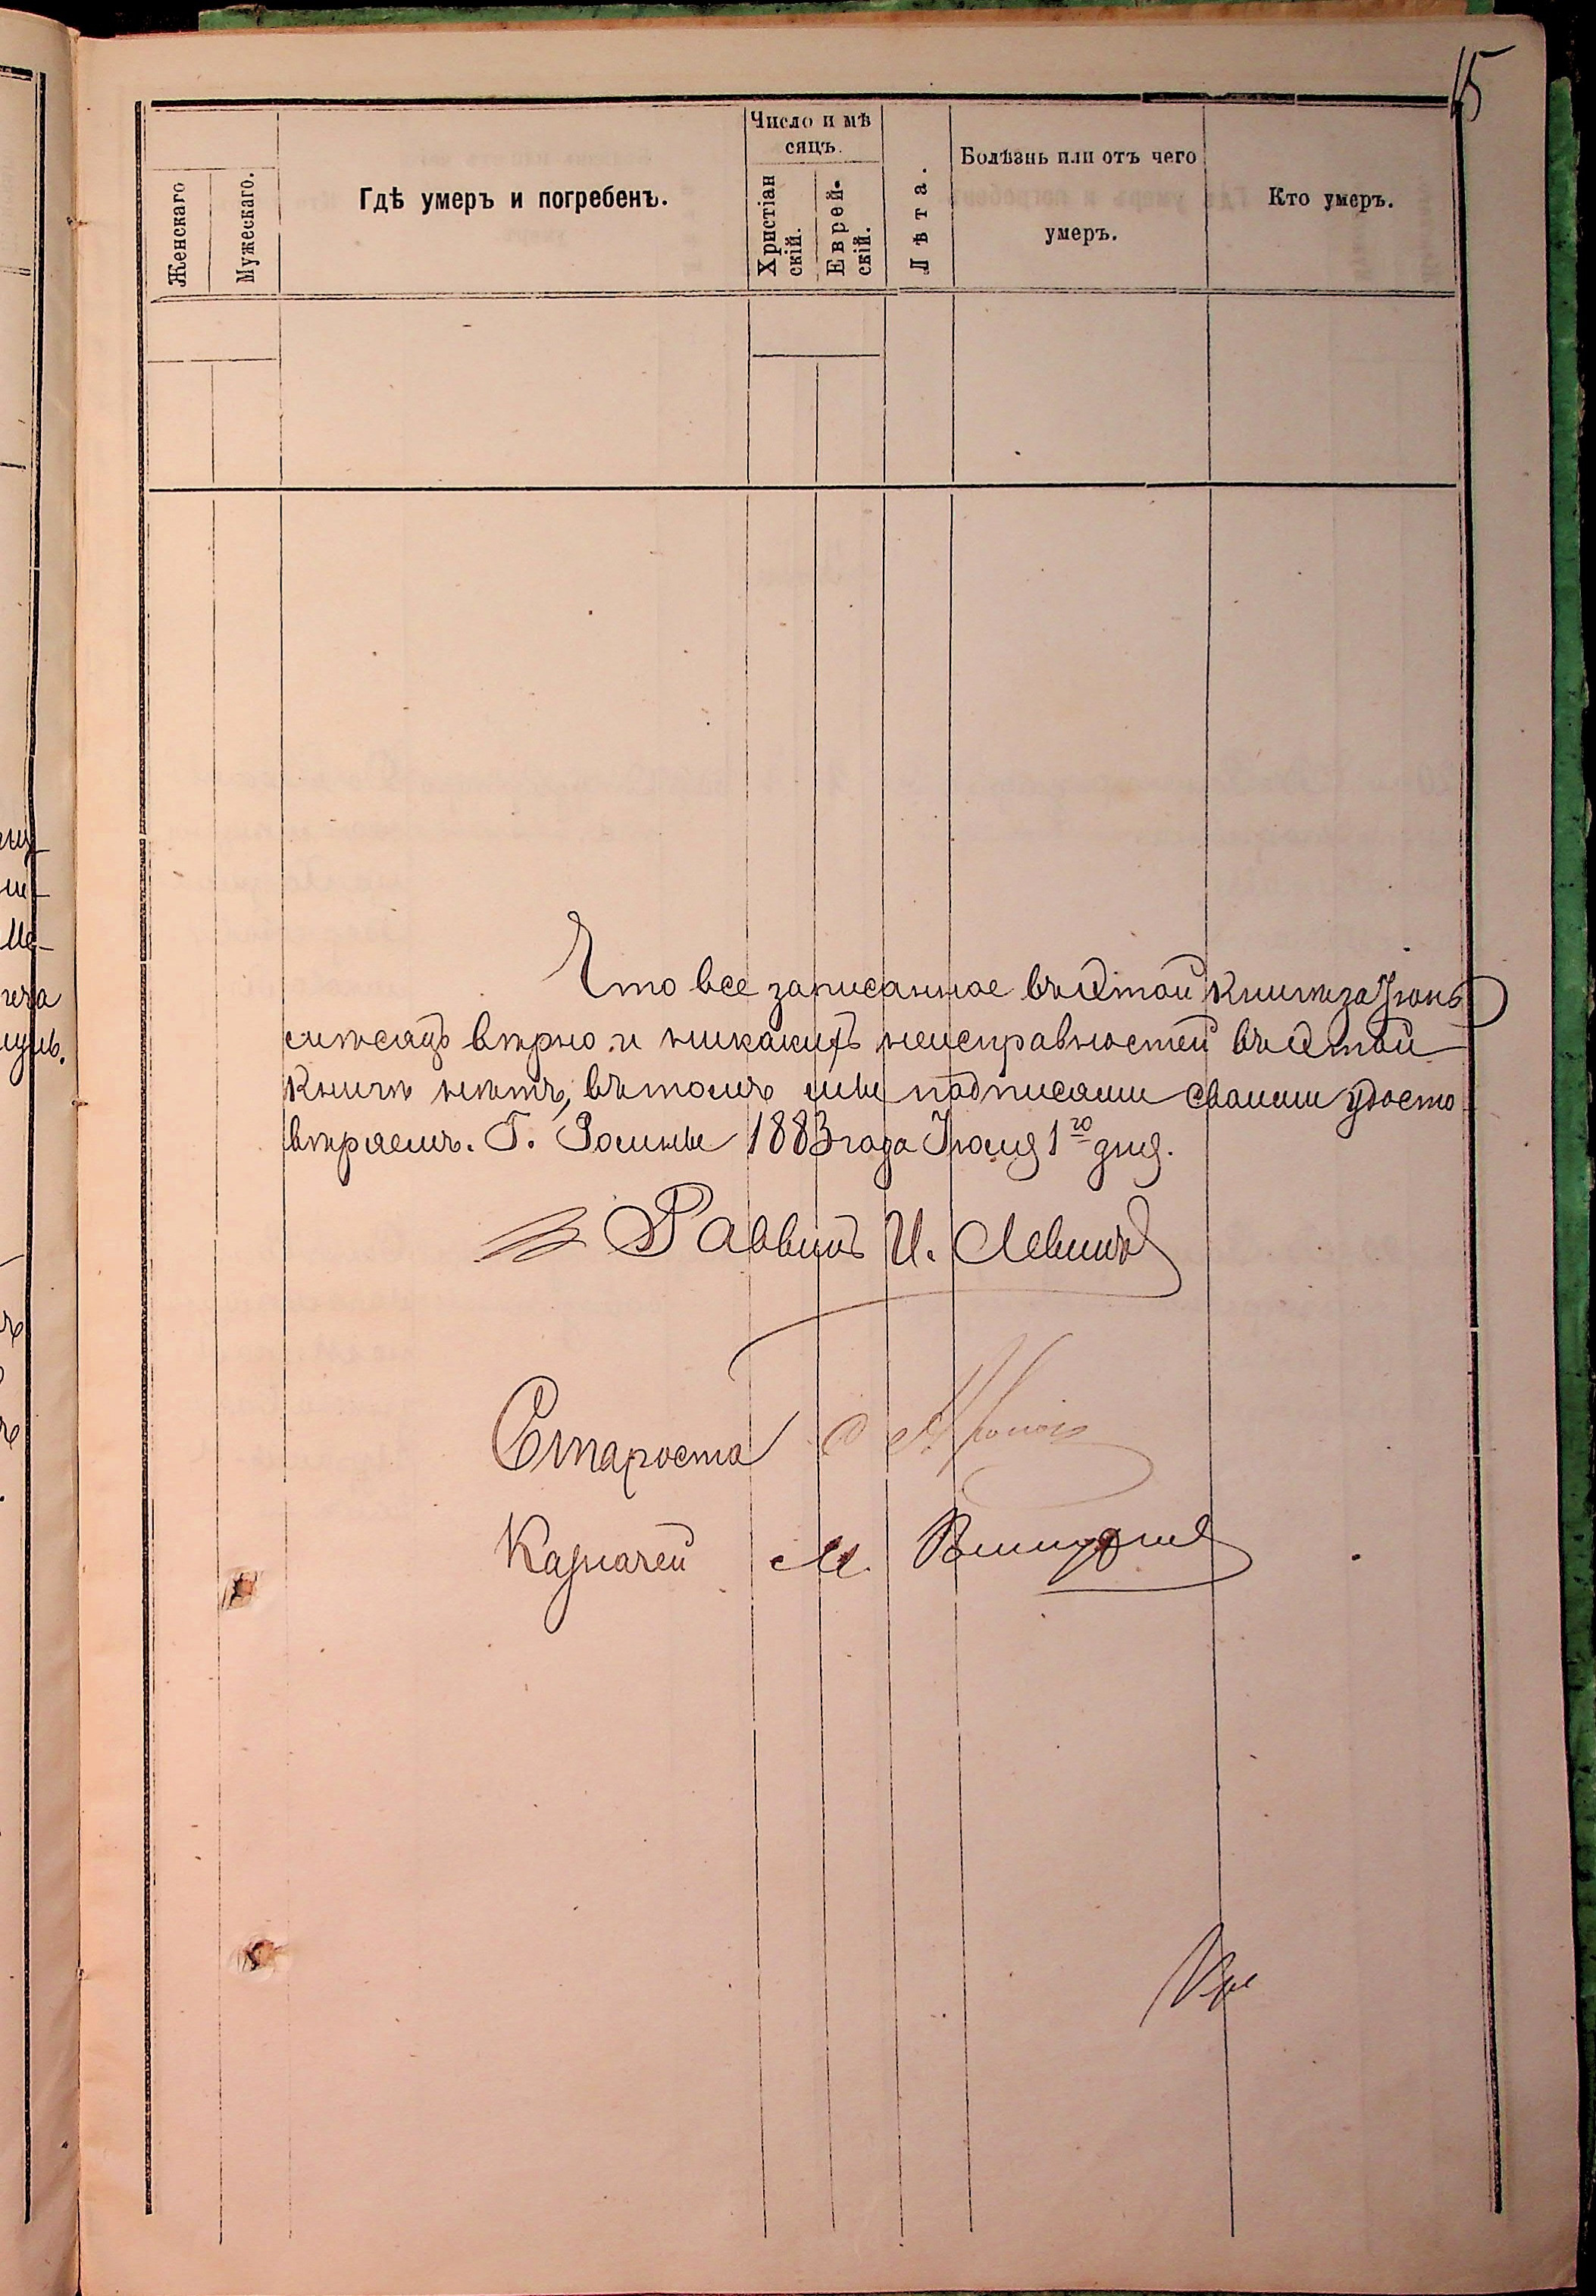 15
Число и мѣ
сяцъ.
Женскаго
Мужескаго.
Гдѣ умеръ и погребенъ.
Христіан
скій.
Еврей-
скій.
Лѣта.
Болѣзнь или отъ чего
умеръ.
Кто умеръ.
Что все записанное въ этой книгѣ за Іюнь
мѣсяцъ вѣрно и никакихъ неисправностей въ этой
книгѣ нѣтъ, въ томъ мы подписами своими удосто
вѣряемъ. Г. 1883 года Іюля 1го дня.
Раввинъ И. Левинъ
Староста
Казначей М.